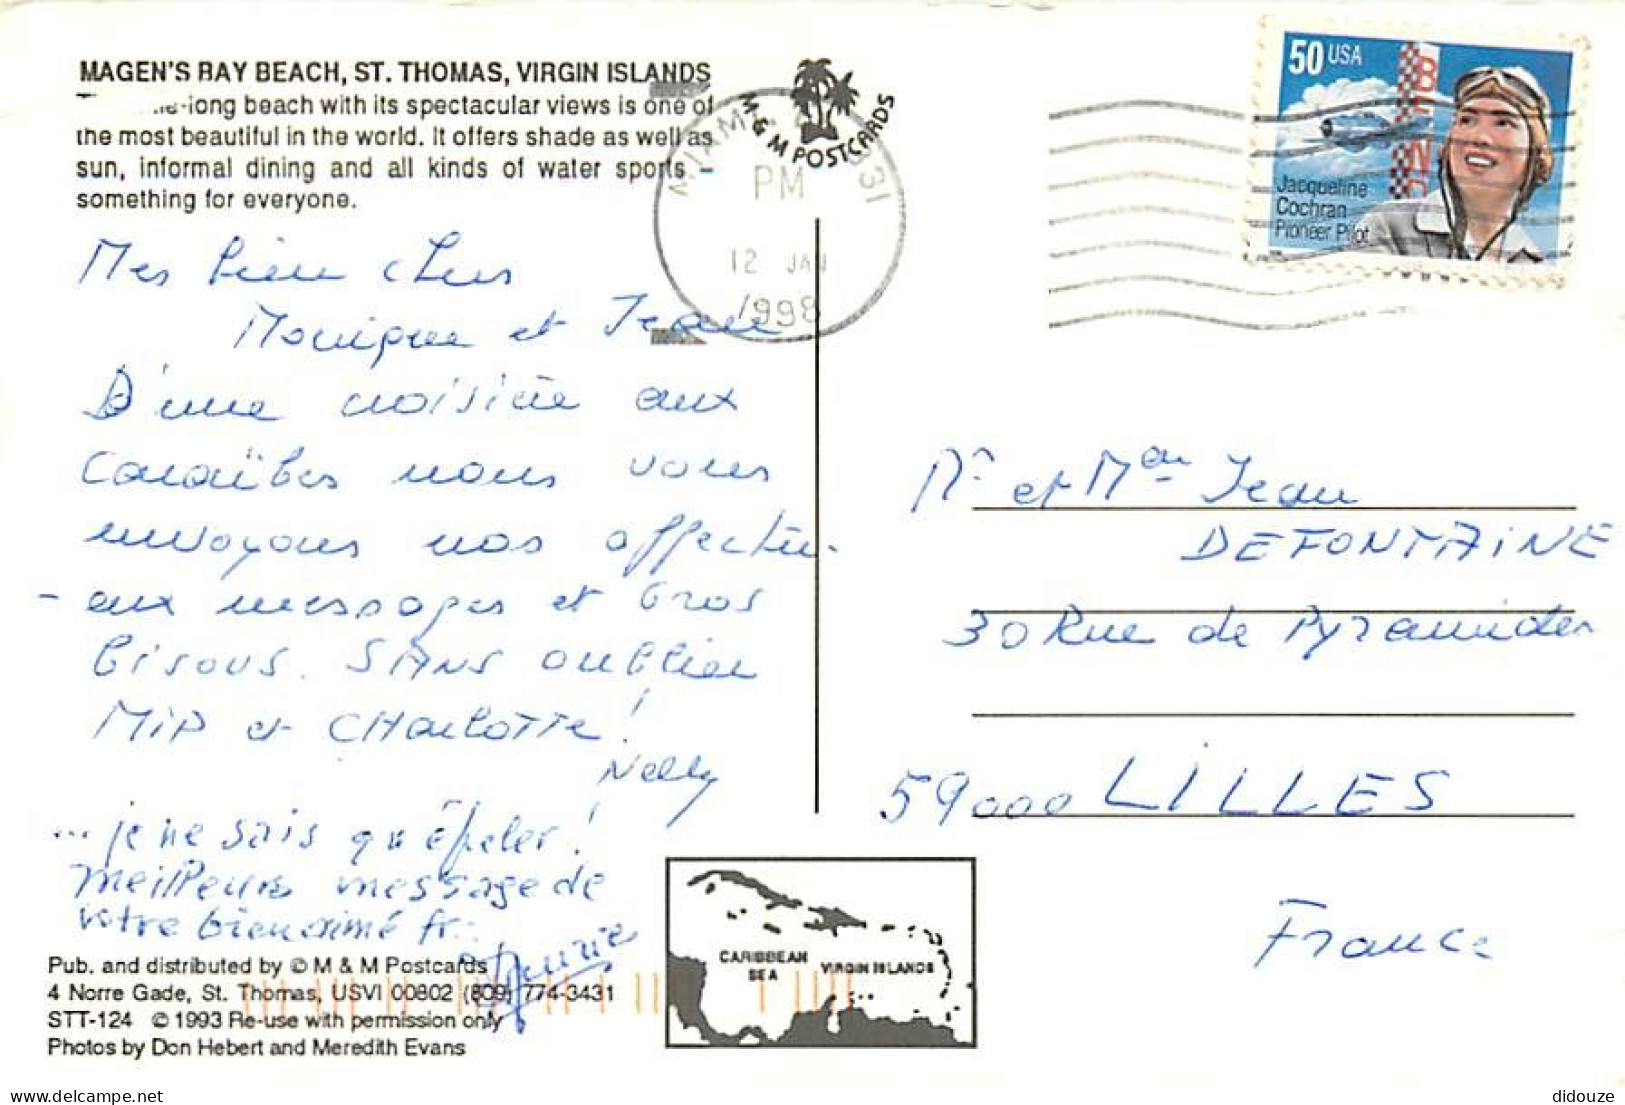 MAGEN'S BAY BEACH, ST. THOMAS, VIRGIN ISLANDS
-long beach with its spectacular views is one of
the most beautiful in the world. It offers shade as well as
sun, informal dining and all kinds of water sports -
something for everyone.
M & M POSTCARDS
MIAMI 331
PM
12 JAN
1998
50 USA
Jacqueline
Cochran
Pioneer Pilot
Mes bien chers
Monique et Jean
D'une croisière aux
Caraïbes nous vous
envoyons nos affectu-
-eux messages et Gros
bisous. SANS oublier
MiP et CHARLOTTE!
Nelly
... je ne sais qu'épeler!
Meilleurs message de
votre bien aimé fr..
Mr et Mme Jean
DEFONTAINE
30 Rue de Pyramides
59000 LILLES
France
Pub. and distributed by © M & M Postcards
4 Norre Gade, St. Thomas, USVI 00802 (809) 774-3431
STT-124 © 1993 Re-use with permission only
Photos by Don Hebert and Meredith Evans
CARIBBEAN
SEA
VIRGIN ISLANDS
delcampe.net
didouze